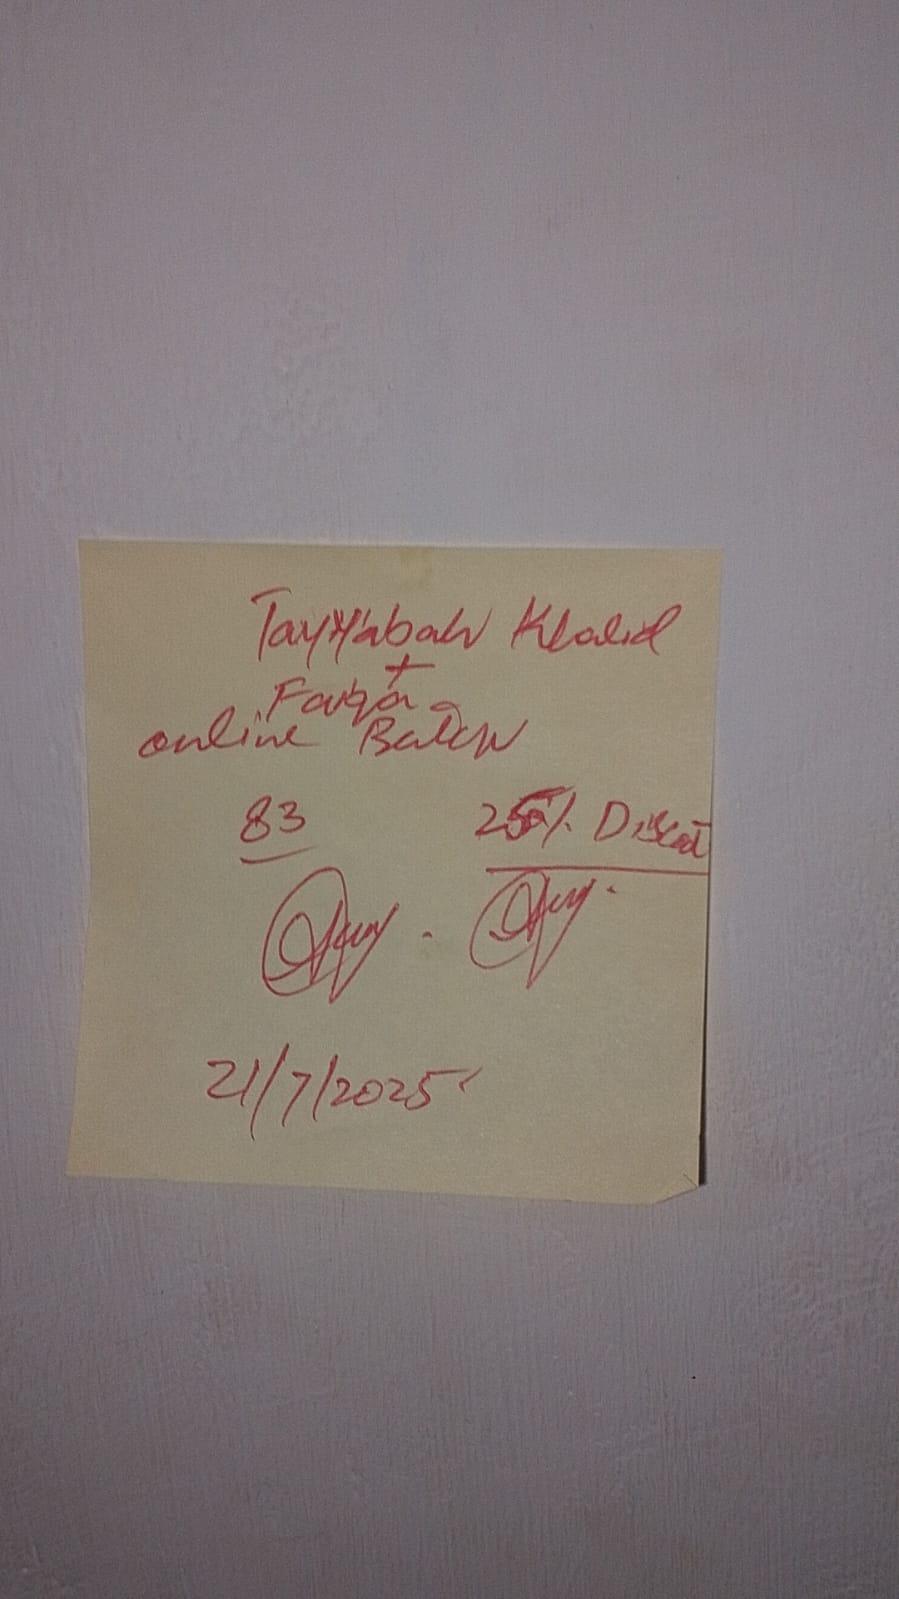 Tayyabah Khalid
+
Faiqa
online Batch
83
25% Discot
21/7/2025